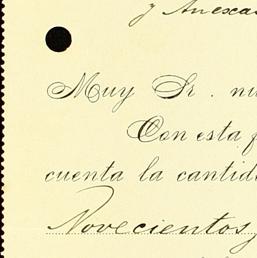 y Anexas
Muy Sr. nu
Con esta f
cuenta la cantid
Novecientos